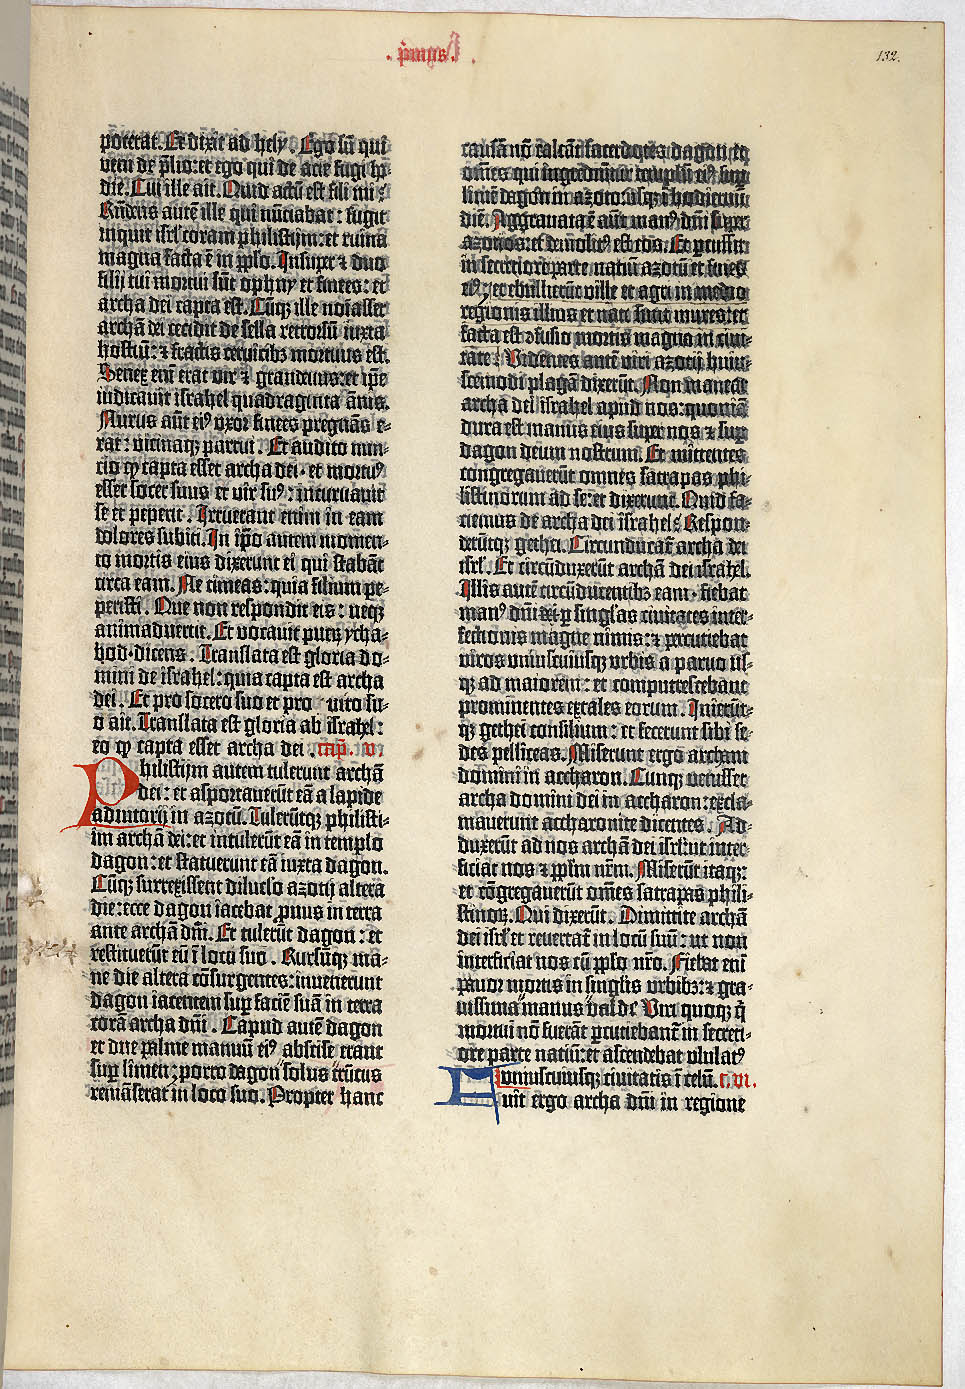 132.
potetat. Et dixit ad hely. Ego sū qui
veni de p̄lio: et ego qui de acie fugi ho-
die. Cui ille ait. Quid actū est fili mi?
Rn̄dens autē ille qui nūciabat: fugit
inquit isrl̄ coram philistijm: et ruina
magna facta ē in pp̄lo. Insuper ⁊ duo
filij tui mortui sūt ophny et finees: et
archa dei capta est. Cūq; ille noīasset
archā dei cecidit de sella retrorsū iuxta
hostiū: ⁊ fractis cervicib; mortuus est.
Senex enī erat vir ⁊ grandevus: et ip̄e
iudicavit israhel quadraginta ānis.
Nurus aūt ei⁹ uxor finees pregnās e-
rat: vicinaq; partui. Et audito nun-
cio ꝙ capta esset archa dei · et mortu⁹
esset socer suus et vir su⁹: incurvavit
se et peperit. Irruerant enim in eam
dolores subiti. In ip̄o autem momen-
to mortis eius dixerunt ei qui stabāt
circa eam. Ne timeas: quia filium pe-
peristi. Que non respondit eis: neq;
animadvertit. Et vocavit pueꝝ ycha-
bod · dicens. Translata est gloria do-
mini de israhel: quia capta est archa
dei. Et pro socero suo et pro viro su-
o ait. Translata est gloria ab israhel:
eo ꝙ capta esset archa dei. cap̄. v.
Philistijm autem tulerunt archā
dei: et asportaverūt eā a lapide
adiutorij in azotū. Tulerūtq; philisti-
im archā dei: et intulerūt eā in templo
dagon: et statuerunt eā iuxta dagon.
Cūq; surrexissent diluclo azotij altera
die: ecce dagon iacebat pronus in terra
ante archā dn̄i. Et tulerūt dagon: et
restituerūt eū ī loco suo. Rursūq; ma-
ne die altera cōsurgentes: invenerunt
dagon iacentem sup faciē suā in terra
corā archa dn̄i. Caput autē dagon
et due palme manuū ei⁹ abscise erant
sup limen; porro dagon solus trūcus
remāserat in loco suo. Propter hanc
causā nō calcāt sacerdotes dagon et
om̄es qui ingrediūtur templū ei⁹ sup
limē dagon in azoto: usq; ī hodiernū
diē. Aggravata ē aūt man⁹ dn̄i super
azotios: et demolit⁹ est eos. Et percussit
in secretiore parte natiū azotū et fines
ei⁹; et ebullierūt ville et agri in medio
regionis illius et nati sunt mures: et
facta est cōfusio mortis magna in civi-
tate. Videntes autē viri azotij huiu-
scemodi plagā dixerūt. Non maneat
archa dei israhel apud nos: quoniā
dura est manus eius super nos ⁊ sup
dagon deum nostrum. Et mittentes
congregaverūt omnes satrapas phi-
listinorum ad se: et dixerunt. Quid fa-
ciemus de archa dei israhel? Respon-
derūtq; gethei. Circunducat̄ archa dei
isrl̄. Et circūduxerūt archā dei israhel.
Illis autē circūducentib; eam · fiebat
man⁹ dn̄i per singlas civitates inter-
fectionis magne nimis: ⁊ percutiebat
viros uniuscuiusq; urbis a parvo us-
q; ad maiorem: et computrescebant
prominentes extales eorum. Inierūt-
q; gethei consilium: et fecerunt sibi se-
des pelliceas. Miserunt ergo archam
domini in accharon. Cunq; venisset
archa domini dei in accharon: excla-
maverunt accharonite dicentes. Ad-
duxerūt ad nos archā dei isrl̄: ut inter-
ficiat nos ⁊ pp̄lm nr̄m. Miserūt itaq;:
et cōgregaverūt om̄es satrapas phili-
stinoꝝ. Qui dixerūt. Dimittite archā
dei isrl̄ et revertat̄ in locū suū: ut non
interficiat nos cū pp̄lo nr̄o. Fiebat enī
pavor mortis in singlis urbib;: ⁊ gra-
vissima manus valde. Viri quoq; q̄
mortui nō fuerāt percutiebant̄ in secreti-
ore parte natiū: et ascendebat ululat⁹
uniuscuiusq; civitatis ī celū. c. vi.
Fuit ergo archa dn̄i in regione